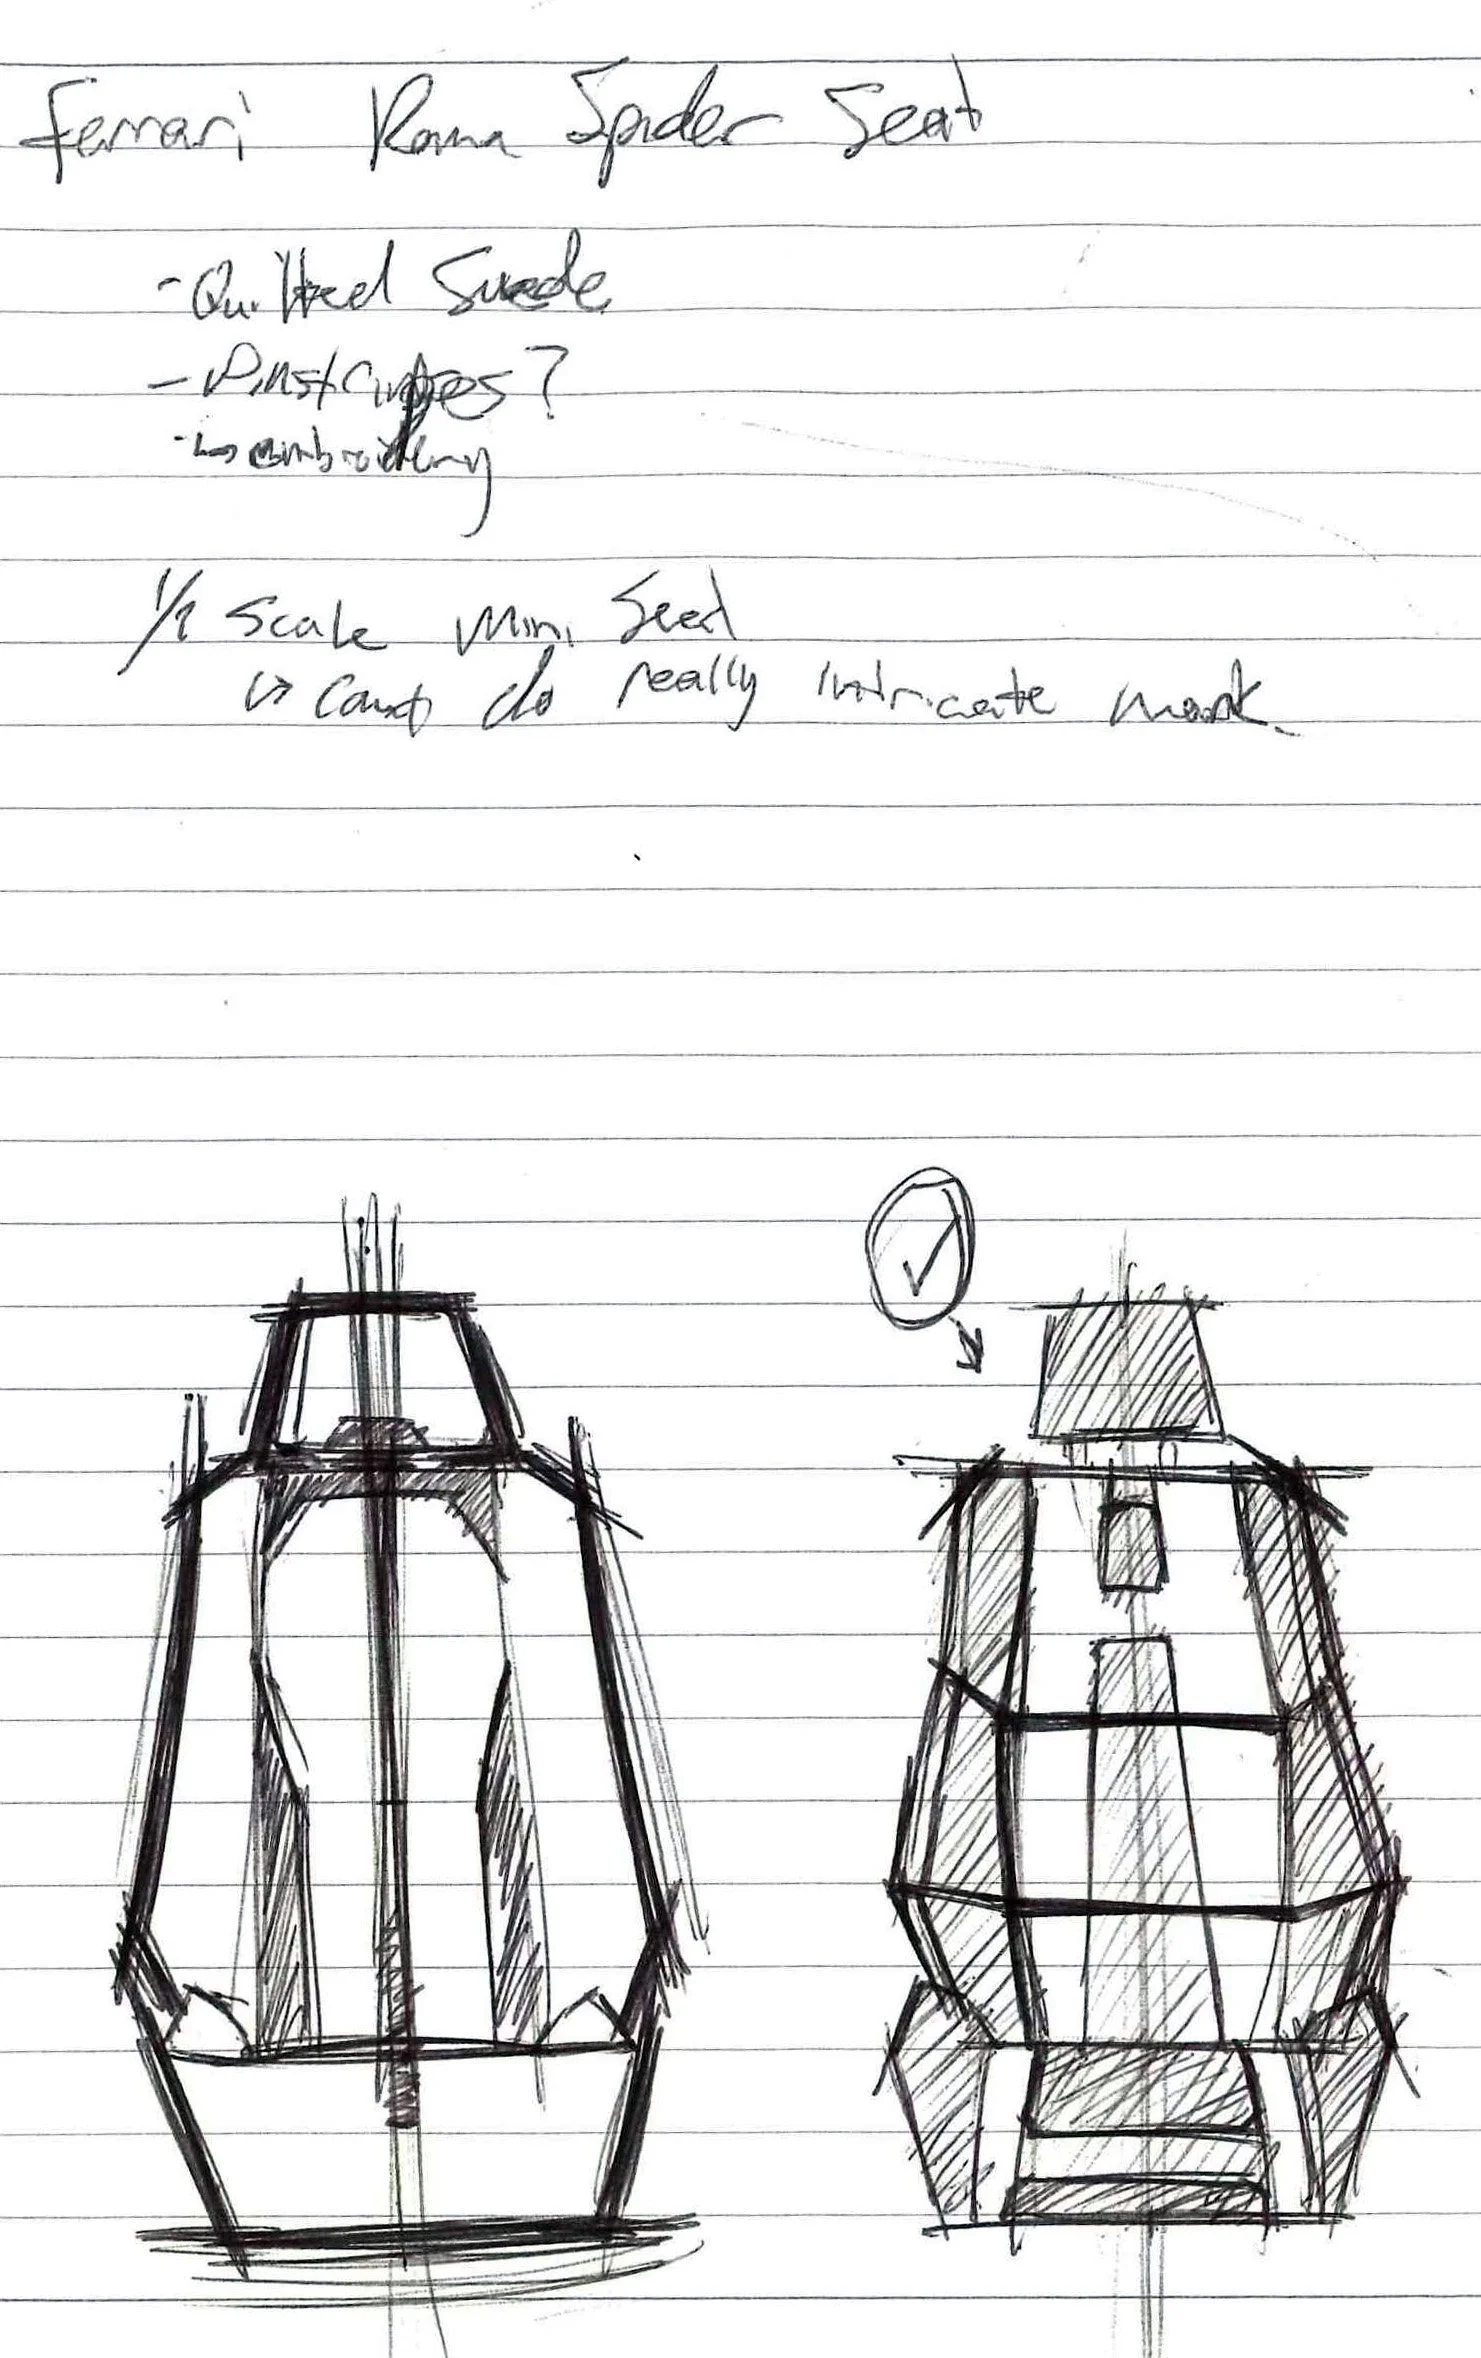 Ferrari Roma Spider Seat
- Quilted Suede
- Pinstripes?
↳ embroidery
1/2 Scale Mini Seat
↳ can't do really intricate work.